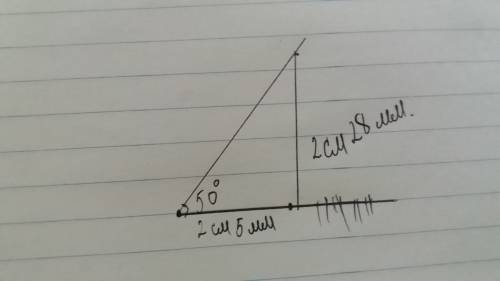 50°
2 см 28 мм.
2 см 5 мм